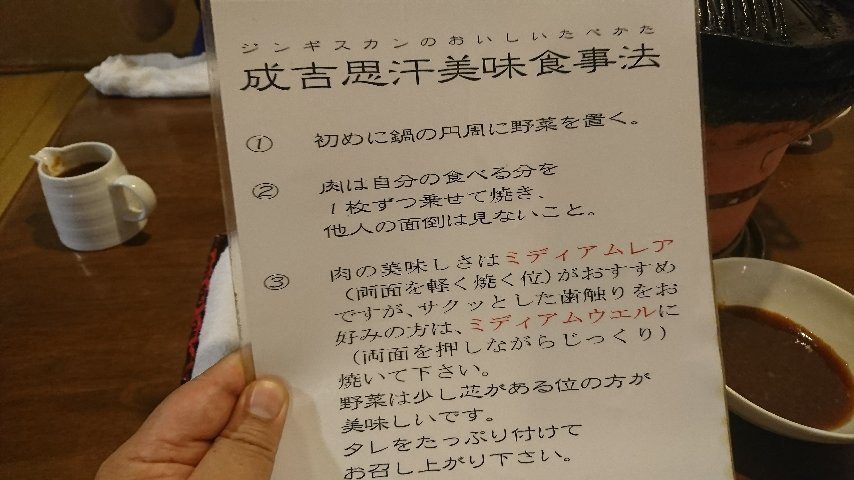 ジンギスカンのおいしいたべかた
成吉思汗美味食事法
① 初めに鍋の円周に野菜を置く。
② 肉は自分の食べる分を
1枚ずつ乗せて焼き、
他人の面倒は見ないこと。
③ 肉の美味しさはミディアムレア
(両面を軽く焼く位)がおすすめ
ですが、サクッとした歯触りをお
好みの方は、ミディアムウエルに
(両面を押しながらじっくり)
焼いて下さい。
野菜は少し芯がある位の方が
美味しいです。
タレをたっぷり付けて
お召し上がり下さい。